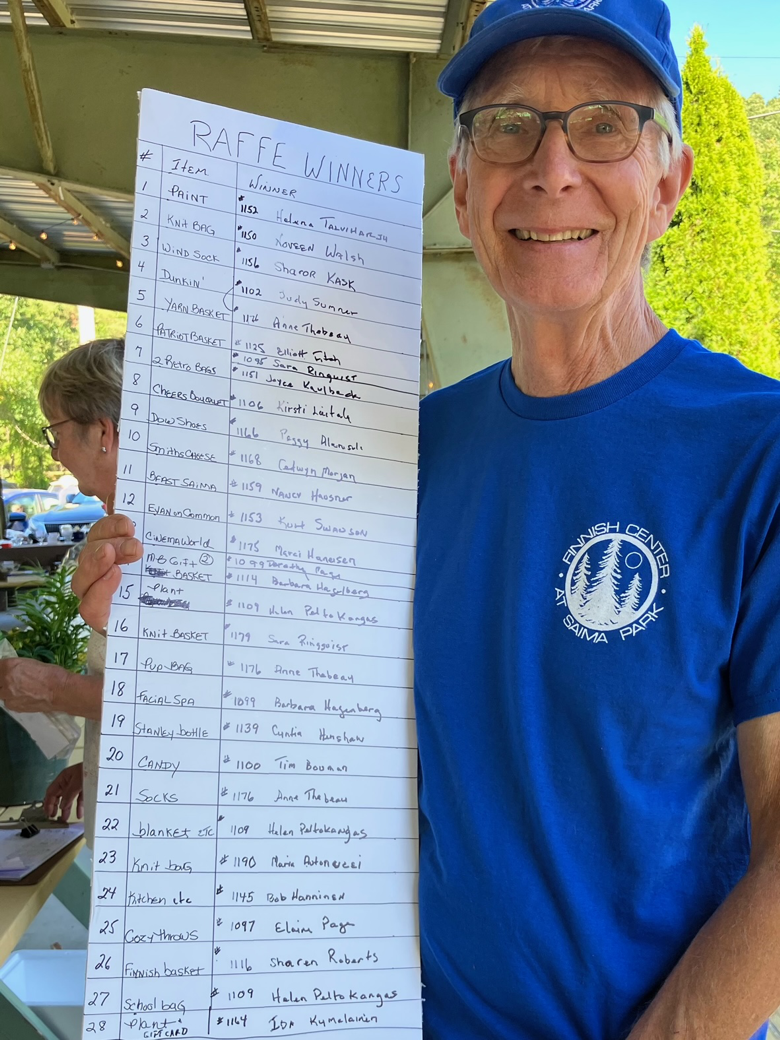 RAFFE WINNERS
# ITEM WINNER
1 PAINT #1152 Helena
2 KNIT BAG #1150 NOVEEN Walsh
3 WIND SOCK #1156 SHAROR KASK
4 DUNKIN' #1102 Judy Sumner
5 YARN BASKET #1176 Anne Thebeau
6 PATRIOT BASKET #1125 Elliott
7 2 Retro BAGS #1095 Sara Ringuist
#1151 Joyce Kaulback
8 CHEERS BOUQUET #1106 Kirsti
9 DOW SHOES #1166 Peggy
10 Smiths CHEESE #1168 Cadwyn Morgan
11 BEAST SAIMA #1159 NANCY Hausner
12 EVAN on Common #1153 Kurt SWANSON
CINEMAWORLD #1175 Marci Hanosen
MB GIFT 2 BASKET #1099 Dorothy Page
#1114 Barbara Hagelberg
15 Plant #1109 Helen Peltokangas
16 KNIT BASKET #1179 Sara Ringguist
17 PUP BAG #1176 Anne Thebeau
18 FACIAL SPA #1099 Barbara Hagenberg
19 STANLEY bottle #1139 Cyntia Henshaw
20 CANDY #1100 Tim Bouman
21 SOCKS #1176 Anne Thebeau
22 blanket ETC #1109 Helen Peltokangas
23 Knit bag #1190 Maria Antonucci
24 Kitchen etc #1145 Bob Hanninen
25 COZY THROWS #1097 Elaine Page
26 FINNISH basket #1116 Sharen Roberts
27 School bag #1109 Helen Peltokangas
28 plant GIFT CARD #1164 IDA Kymalainen
FINNISH CENTER
AT SAIMA PARK
PARK